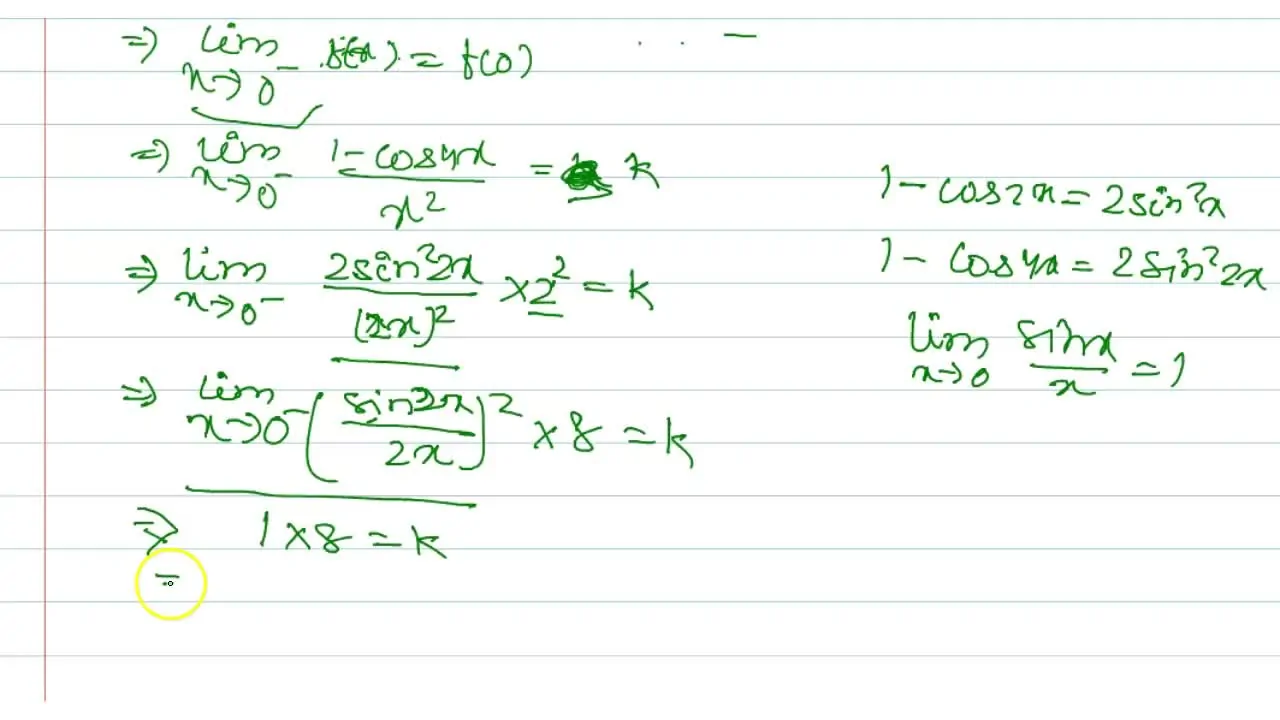 ⇒ lim x→0⁻ f(x) = f(0) . . —
⇒ lim x→0⁻ (1 - cos4x)/x² = k
⇒ lim x→0⁻ 2sin²2x/(2x)² × 2² = k
⇒ lim x→0⁻ (sin2x/2x)² × 8 = k
⇒ 1 × 8 = k
=
1 - cos2x = 2sin²x
1 - cos4x = 2sin²2x
lim x→0 sinx/x = 1